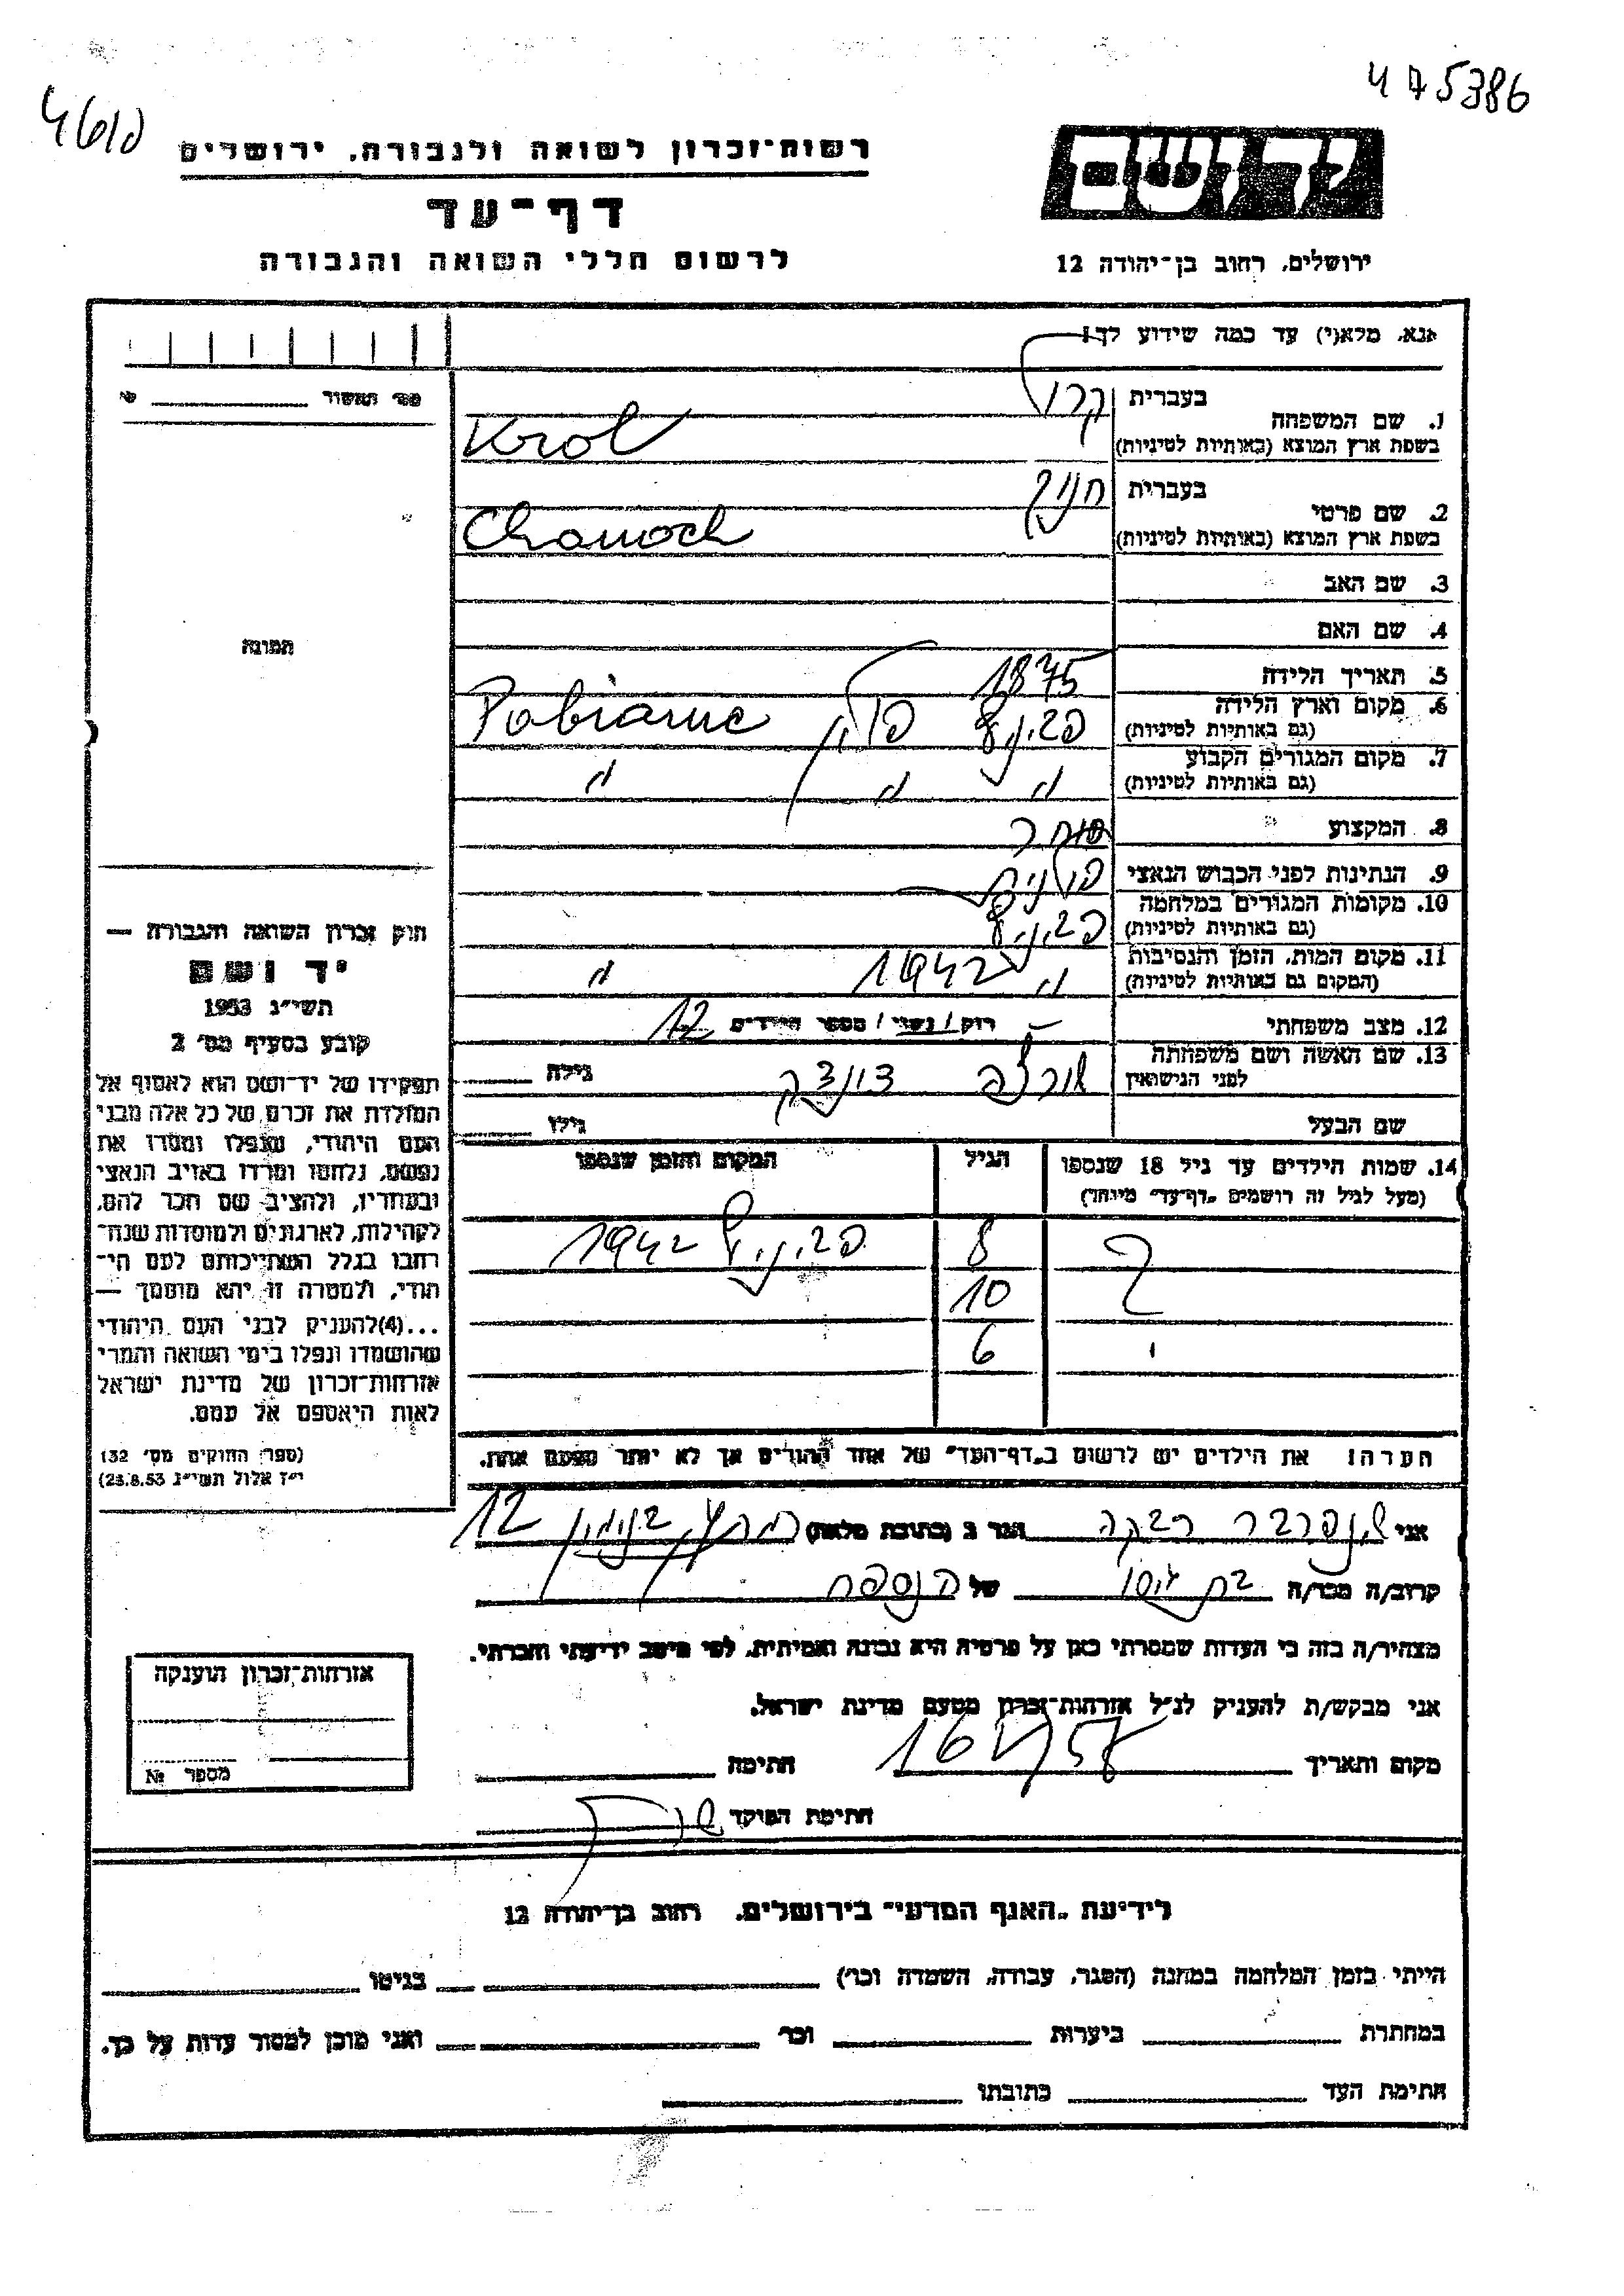 475386
רשות־זכרון לשואה ולגבורה, ירושלים
דף־עד
לרשום חללי השואה והגבורה
יד ושם
ירושלים, רחוב בן־יהודה 12
אנא, מלא(י) עד כמה שידוע לך!
מס' תאשור
1. שם המשפחה
בעברית קרול
בשפת ארץ המוצא (באותיות לטיניות) Krol
2. שם פרטי
בעברית חנוך
בשפת ארץ המוצא (באותיות לטיניות) Chanoch
3. שם האב
4. שם האם
5. תאריך הלידה 1875
6. מקום וארץ הלידה
(גם באותיות לטיניות) פביניץ פולין Pabianice
7. מקום המגורים הקבוע
(גם באותיות לטיניות) " " "
8. המקצוע סוחר
9. הנתינות לפני הכבוש הנאצי פולנית
10. מקומות המגורים במלחמה
(גם באותיות לטיניות) פביניץ
11. מקום המות, הזמן והנסיבות
(המקום גם באותיות לטיניות) " 1942 "
12. מצב משפחתי רווק / נשוי / מספר הילדים 12
13. שם האשה ושם משפחתה
לפני הנישואין גילה
שם הבעל גילו
14. שמות הילדים עד גיל 18 שנספו
(מעל לגיל זה רושמים "דף־עד" מיוחד)
הגיל
המקום והזמן שנספו
? 8 פביניץ 1942
10
6
הערה: את הילדים יש לרשום ב"דף־העד" של אחד ההורים אך לא יותר מפעם אחת.
אני רבקה הגר ב (כתובת מלאה) 12
קרוב/ה מכר/ה בת של הנספה
מצהיר/ה בזה כי העדות שמסרתי כאן על פרטיה היא נכונה ואמיתית, לפי מיטב ידיעתי והכרתי.
אני מבקש/ת להעניק לנ"ל אזרחות־זכרון מטעם מדינת ישראל.
מקום ותאריך חתימה
חתימת הפוקד
תמונה
חוק זכרון השואה והגבורה —
יד ושם
תשי"ג 1953
קובע בסעיף מס' 2
תפקידו של יד־ושם הוא לאסוף אל
המולדת את זכרם של כל אלה מבני
העם היהודי, שנפלו ומסרו את
נפשם, נלחמו ומרדו באויב הנאצי
ובעוזריו, ולהציב שם וזכר להם,
לקהילות, לארגונים ולמוסדות שנח־
רבו בגלל השתייכותם לעם הי־
הודי, ולמטרה זו יהא מוסמך —
...(4)להעניק לבני העם היהודי
שהושמדו ונפלו בימי השואה והמרי
אזרחות־זכרון של מדינת ישראל
לאות היאספם אל עמם.
(ספר החוקים מס' 132
י"ז אלול תשי"ג 28.8.53)
אזרחות־זכרון הוענקה
מספר №
לידיעת "האגף המדעי" בירושלים, רחוב בן־יהודה 12
הייתי בזמן המלחמה במחנה (הסגר, עבודה, השמדה וכו') בגיטו
במחתרת ביערות וכו' ואני מוכן למסור עדות על כך.
חתימת העד כתובתו